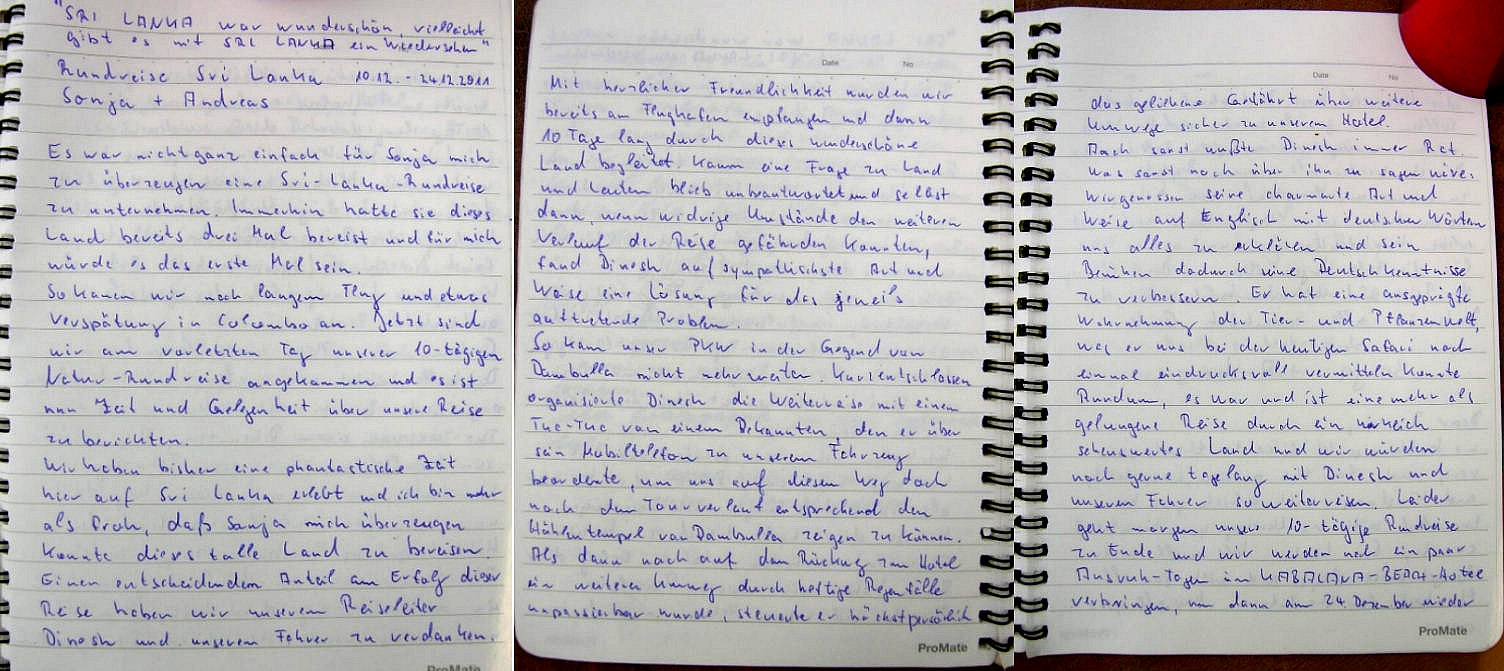 "SRI LANKA war wunderschön, vielleicht
gibt es mit SRI LANKA ein Wiedersehen"
Rundreise Sri Lanka 10.12. - 24.12.2011
Sonja + Andreas
Es war nicht ganz einfach für Sonja mich
zu überzeugen eine Sri-Lanka-Rundreise
zu unternehmen. Immerhin hatte sie dieses
Land bereits drei Mal bereist und für mich
würde es das erste Mal sein.
So kamen wir nach langem Flug und etwas
Verspätung in Colombo an. Jetzt sind
wir am vorletzten Tag unserer 10-tägigen
Natur-Rundreise angekommen und es ist
nun Zeit und Gelegenheit über unsere Reise
zu berichten.
Wir haben bisher eine phantastische Zeit
hier auf Sri Lanka erlebt und ich bin mehr
als froh, daß Sonja mich überzeugen
konnte dieses tolle Land zu bereisen.
Einen entscheidenden Anteil am Erfolg dieser
Reise haben wir unserem Reiseleiter
Dinesh und unserem Fahrer zu verdanken.
ProMate
Date No
Mit herzlicher Freundlichkeit wurden wir
bereits am Flughafen empfangen und dann
10 Tage lang durch dieses wunderschöne
Land begleitet. Kaum eine Frage zu Land
und Leuten blieb unbeantwortet und selbst
dann, wenn widrige Umstände den weiteren
Verlauf der Reise gefährden konnten,
fand Dinesh auf sympathischste Art und
Weise eine Lösung für das jeweils
auftretende Problem.
So kam unser PKW in der Gegend von
Dambulla nicht mehr weiter. Kurzentschlossen
organisierte Dinesh die Weiterreise mit einem
Tuc-Tuc von einem Bekannten, den er über
sein Mobiltelefon zu unserem Fahrzeug
beorderte, um uns auf diesem Weg doch
noch dem Tourverlauf entsprechend den
Höhlentempel von Dambulla zeigen zu können.
Als dann noch auf dem Rückweg zum Hotel
ein weiterer Umweg durch heftige Regenfälle
unpassierbar wurde, steuerte er höchstpersönlich
ProMate
Date No
das geliehene Gefährt über weitere
Umwege sicher zu unserem Hotel.
Auch sonst wußte Dinesh immer Rat.
Was sonst noch über ihn zu sagen wäre:
Wir genossen seine charmante Art und
Weise auf Englisch mit deutschen Wörtern
uns alles zu erklären und sein
Bemühen dadurch seine Deutschkenntnisse
zu verbessern. Er hat eine ausgeprägte
Wahrnehmung der Tier- und Pflanzenwelt,
was er uns bei der heutigen Safari noch
einmal eindrucksvoll vermitteln konnte
Rundum, es war und ist eine mehr als
gelungene Reise durch ein
sehenswertes Land und wir würden
noch gerne tagelang mit Dinesh und
unserem Fahrer so weiterreisen. Leider
geht morgen unsere 10-tägige Rundreise
zu Ende und wir werden noch ein paar
Ausruh-Tagen im KABALANA-BEACH-Hotel
verbringen, um dann am 24. Dezember wieder
ProMate